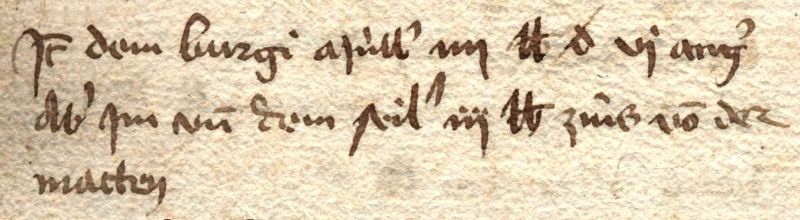 It dem burgi apull' iiii lb d vi ang'
Ab' im vn̄ dem seil' iij lb zins vō der
matten